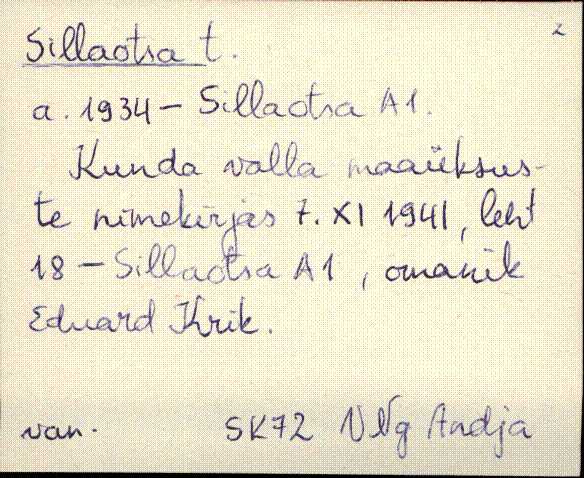 2
Sillaotsa t.
a. 1934 - Sillaotsa A1.
Kunda valla maaüksus-
te nimekirjas 7. XI 1941, leht
18 - Sillaotsa A1, omanik
Eduard Krik.
van. SK72 VNg Andja